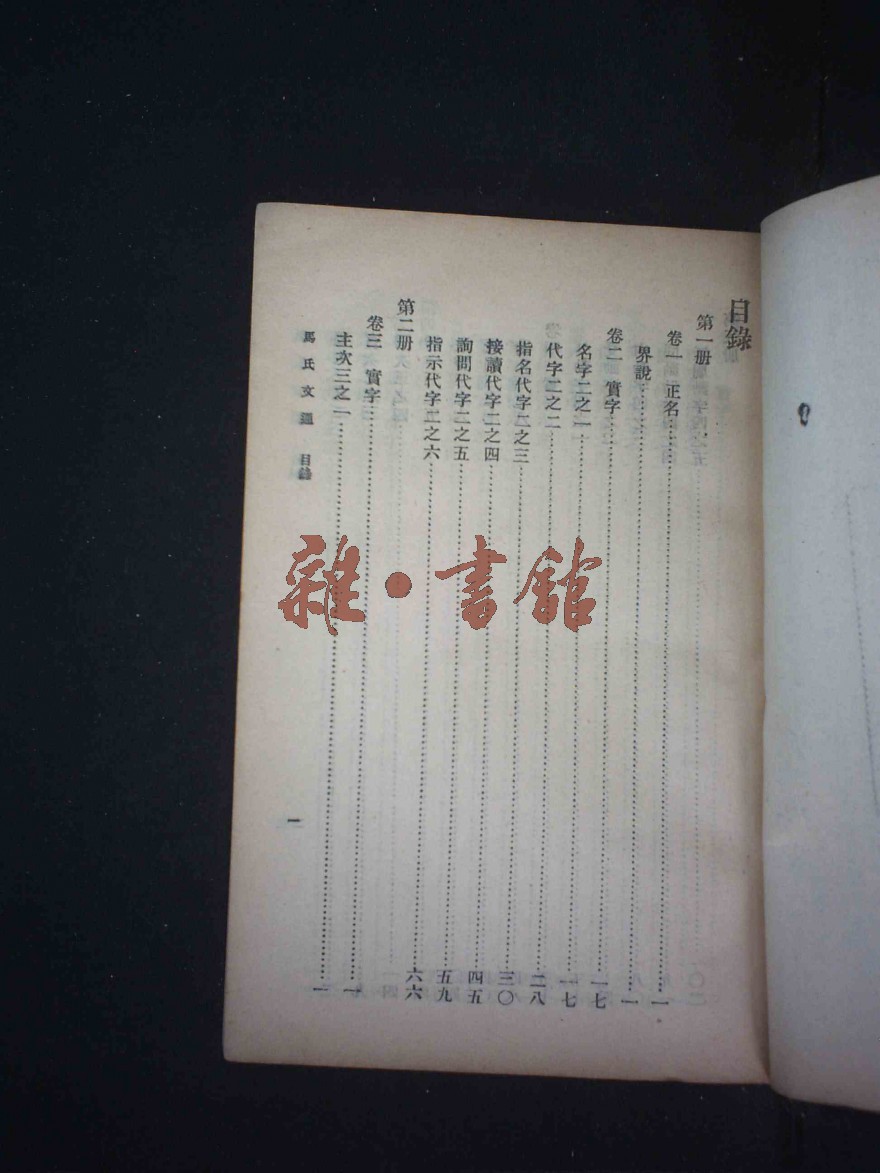 目錄
第一册
卷一 正名……一
界說……一
卷二 實字……一七
名字二之一……一七
代字二之二……二八
指名代字二之三……三〇
接讀代字二之四……四五
詢問代字二之五……五九
指示代字二之六……六六
第二册
卷三 實字……一
主次三之一……一
馬氏文通 目錄
一
雜·書館